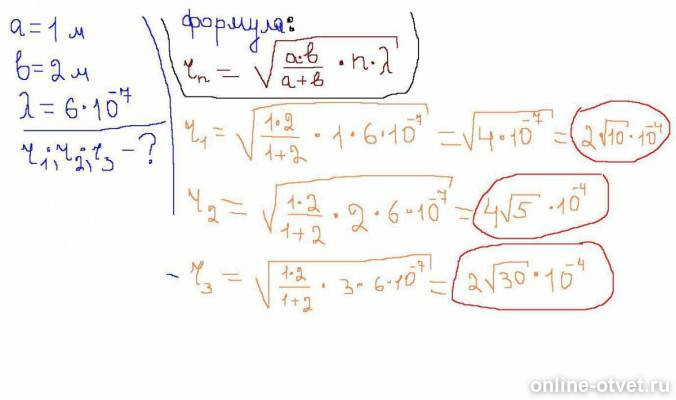 a = 1 м
в = 2 м
λ = 6·10⁻⁷
r₁; r₂; r₃ – ?
формула:
rₙ = √(a·в/(a+в) · n · λ)
r₁ = √(1·2/(1+2) · 1 · 6·10⁻⁷) = √(4·10⁻⁷) = 2√10·10⁻⁴
r₂ = √(1·2/(1+2) · 2 · 6·10⁻⁷) = 4√5 · 10⁻⁴
- r₃ = √(1·2/(1+2) · 3 · 6·10⁻⁷) = 2√30 · 10⁻⁴
online-otvet.ru